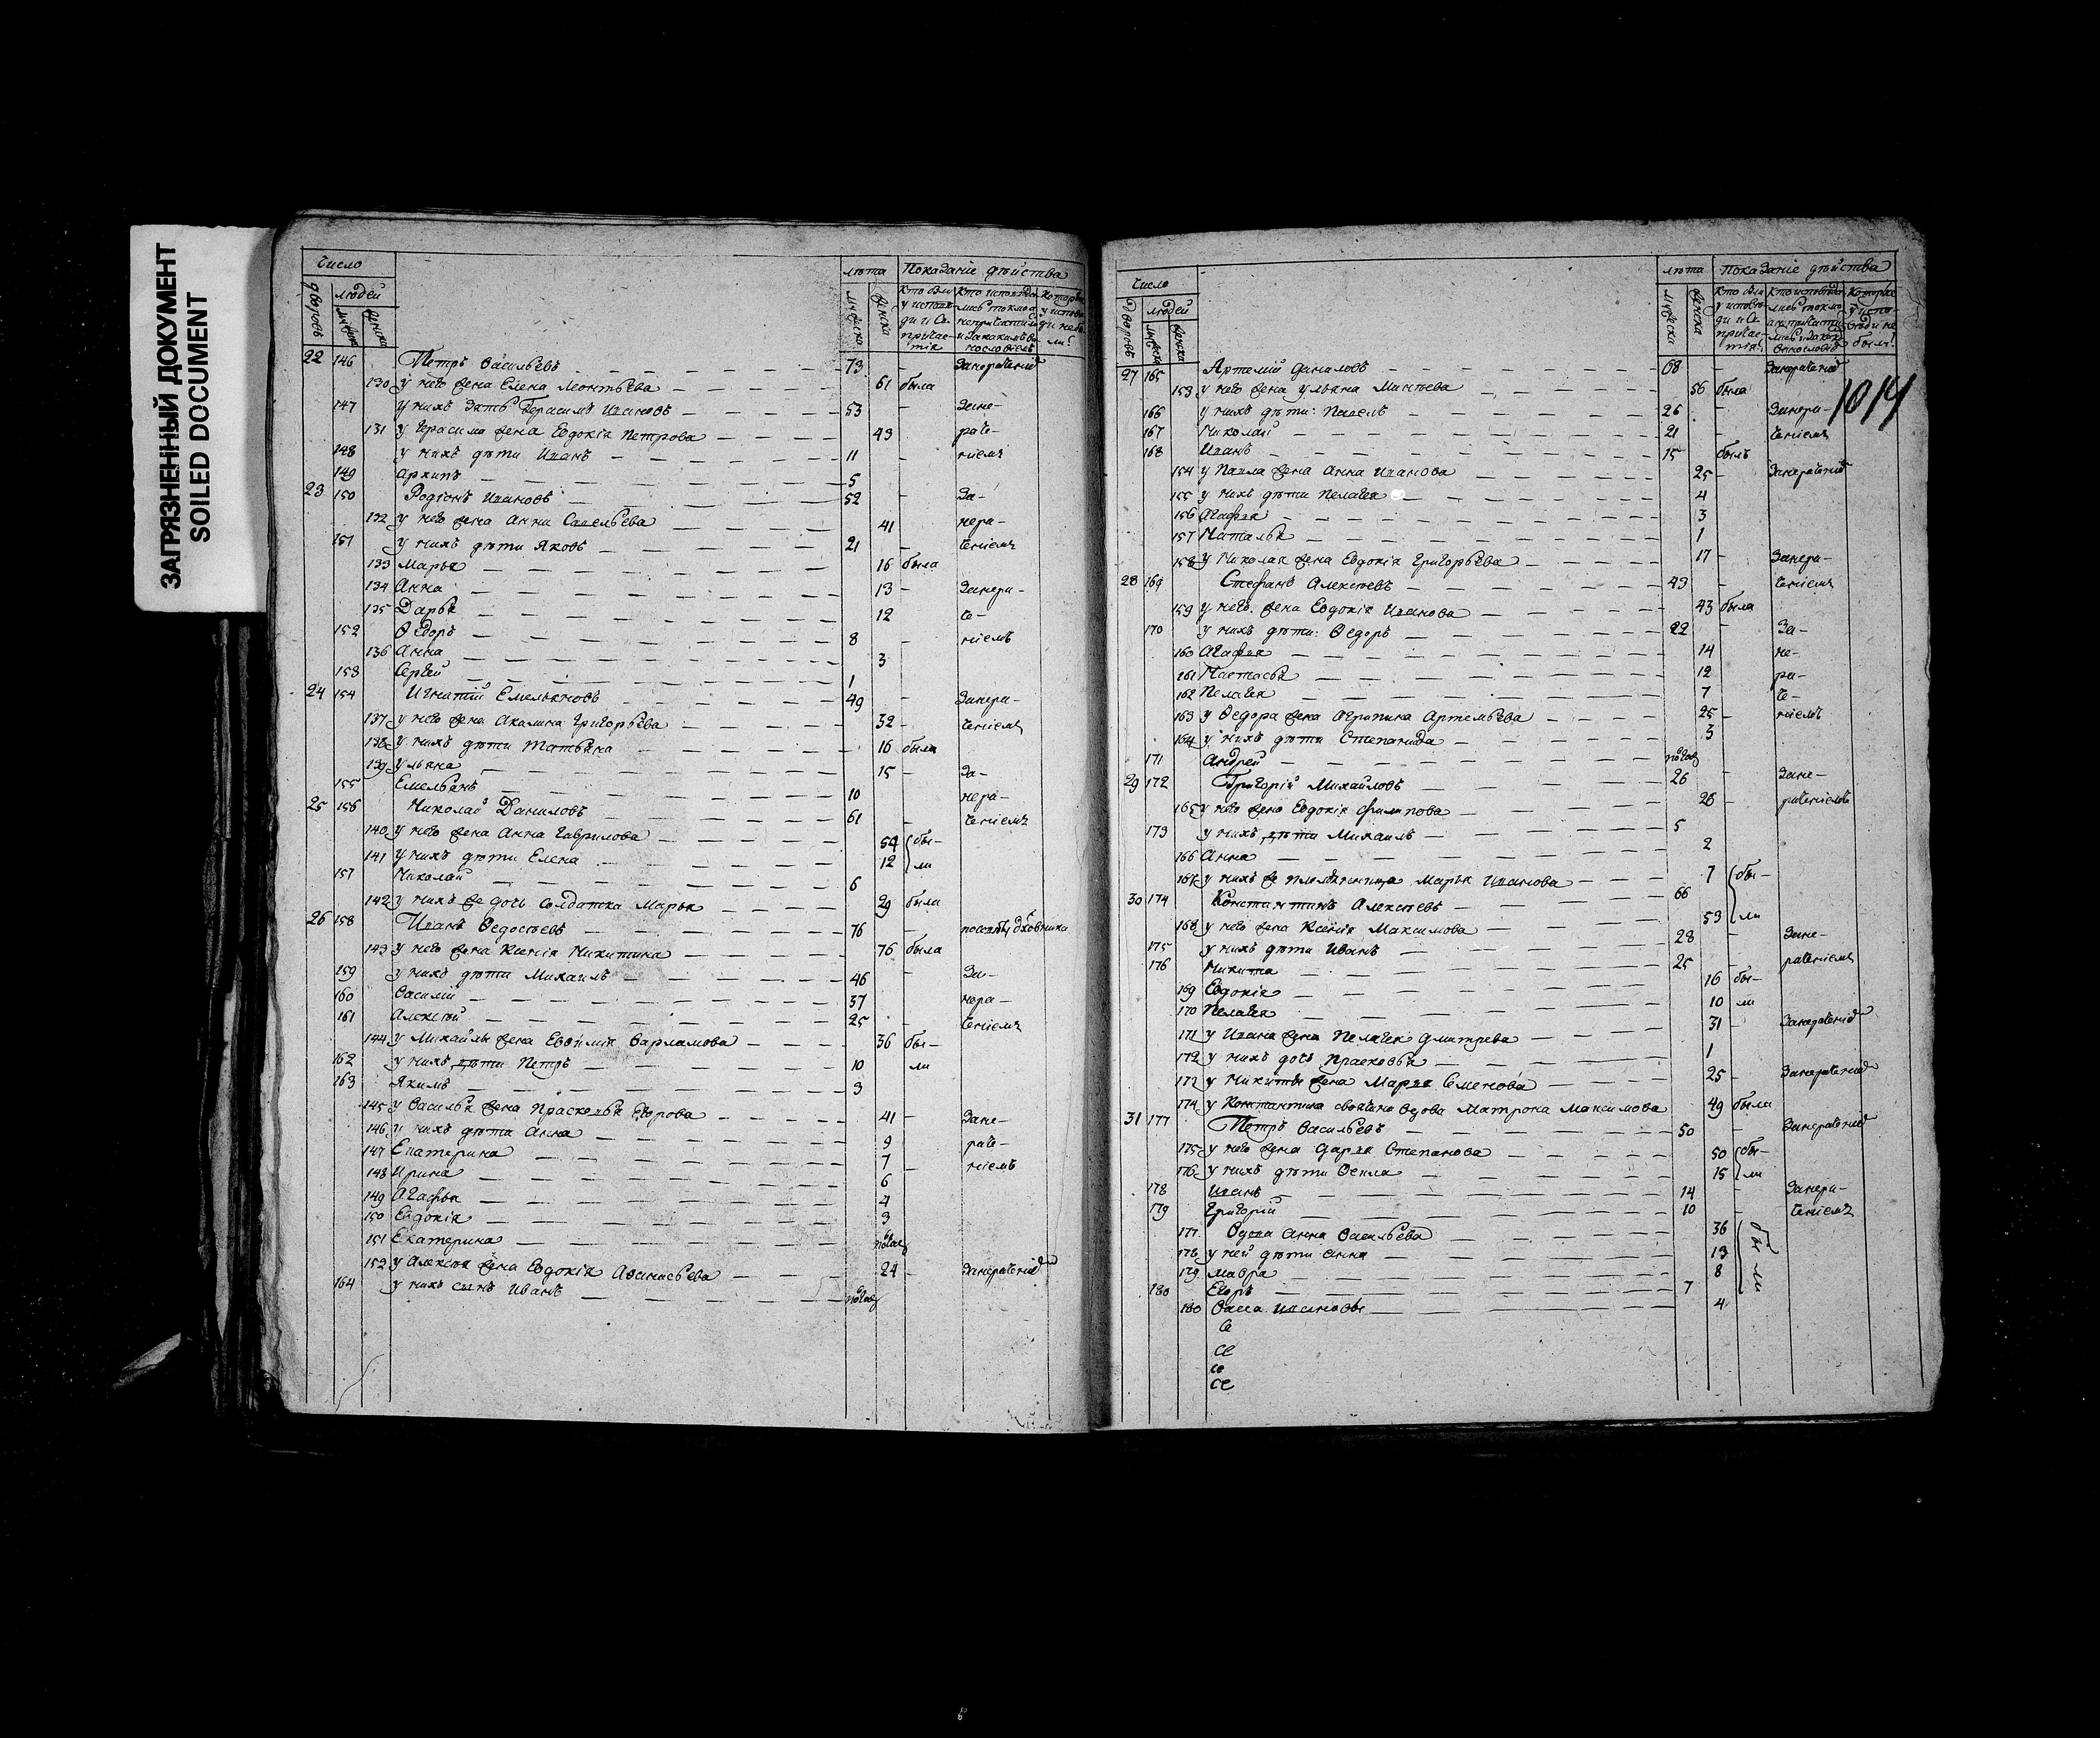 ЗАГРЯЗНЕННЫЙ ДОКУМЕНТ
SOILED DOCUMENT
Число
лѣта Показаніе дѣйства
дворовъ людей
мужеска женска
22 146 Петръ Васильевъ 73 - Занераченіе
130 у него жена Елена Леонтьева 61 была
147 у нихъ зять Герасимъ Ивановъ 53 - Зане-
131 у Герасима жена Евдокія Петрова 49 раче-
148 у нихъ дѣти Иванъ 11 ніемъ
149 Архипъ 5
23 150 Родіонъ Ивановъ 52 - За-
132 у него жена Анна Савельева 41 нера-
151 у нихъ дѣти Яковъ 21 - ченіемъ
133 Марья 16 была
134 Анна 13 - Занера-
135 Дарья 12 че-
152 Ѳедоръ 8 - ніемъ
136 Анна 3
153 Сергей 1
24 154 Игнатій Емельяновъ 49 - Занера-
137 у него жена Акилина Григорьева 32 - ченіемъ
138 у нихъ дѣти Татьяна 16 была
139 Ульяна 15 - За-
155 Емельянъ 10 нера-
25 156 Николай Даниловъ 61 ченіемъ
140 у него жена Анна Гаврилова 54 бы-
141 у нихъ дѣти Елена 12 ли
157 Николай 6
142 у нихъ же дочь Солдатка Марья 29 была
26 158 Иванъ Ѳедосѣевъ 76 -
143 у него жена Ксенія Никитина 76 была
159 у нихъ дѣти Михаилъ 46 За-
160 Василій 37 нера-
161 Алексѣй 25 - ченіемъ
144 у Михайлы жена Евѳимія Варламова 36 бы-
162 у нихъ дѣти Петръ 10 ли
163 Якимъ 3
145 у Василья жена Прасковья Егорова 41 - Зане-
146 у нихъ дѣти Анна 9 раче-
147 Екатерина 7 - ніемъ
148 Ирина 6
149 Агафья 4
150 Евдокія 3
151 Екатерина полгод
152 у Алексѣя жена Евдокія Аѳанасьева 24 - Занераченіе
164 у нихъ сынъ Иванъ полгод
Число
лѣта Показаніе дѣйства
дворовъ людей
мужеска женска
1014
27 165 Артемій Даниловъ 68 - Занераченіе
153 у него жена Ульяна Минѣева 56 была
166 у нихъ дѣти: Павелъ 26 - Занера-
167 Николай 21 - ченіемъ
168 Иванъ 15 былъ
154 у Павла жена Анна Иванова 25 - Занераченіе
155 у нихъ дѣти Пелагея 4
156 Агафья 3
157 Наталья 1
158 у Николая жена Евдокія Григорьева 17 - Занера-
28 169 Стефанъ Алексѣевъ 49 - ченіемъ
159 у него жена Евдокія Иванова 43 была
170 у нихъ дѣти: Ѳедоръ 22 - За-
160 Агафья 14 не-
161 Настасья 12 ра-
162 Пелагея 7 че-
163 у Ѳедора жена Агрипина Артемьева 25 - ніемъ
164 у нихъ дѣти Степанида 3
171 Андрей полгод
29 172 Григорій Михайловъ 26 - Зане-
165 у него жена Евдокія Филипова 26 - раченіемъ
173 у нихъ дѣти Михаилъ 5
166 Анна 2
167 у нихъ же племянница Марья Иванова 7 бы-
30 174 Константинъ Алексѣевъ 66
168 у него жена Ксенія Максимова 53 ли
175 у нихъ дѣти Иванъ 28 - Зане-
176 Никита 25 - раченіемъ
169 Евдокія 16 бы-
170 Пелагея 10 ли
171 у Ивана жена Пелагея Дмитрева 31 - Занераченіе
172 у нихъ дочь Прасковья 1
173 у Никиты жена Марья Семенова 25 - Занераченіе
174 у Контантина своячина вдова Матрона Максимова 49 была
31 177 Петръ Васильевъ 50 - Занераченіе
175 у него жена Дарья Степанова 50 бы-
176 у нихъ дѣти Ѳекла 15 ли
178 Иванъ 14 - Занера-
179 Григорій 10 - ченіемъ
177 Вдова Анна Васильева 36 бы
178 у ней дѣти Анна 13
179 Мавра 8 ли
180 Егоръ 7
180 Васса Иванова 4